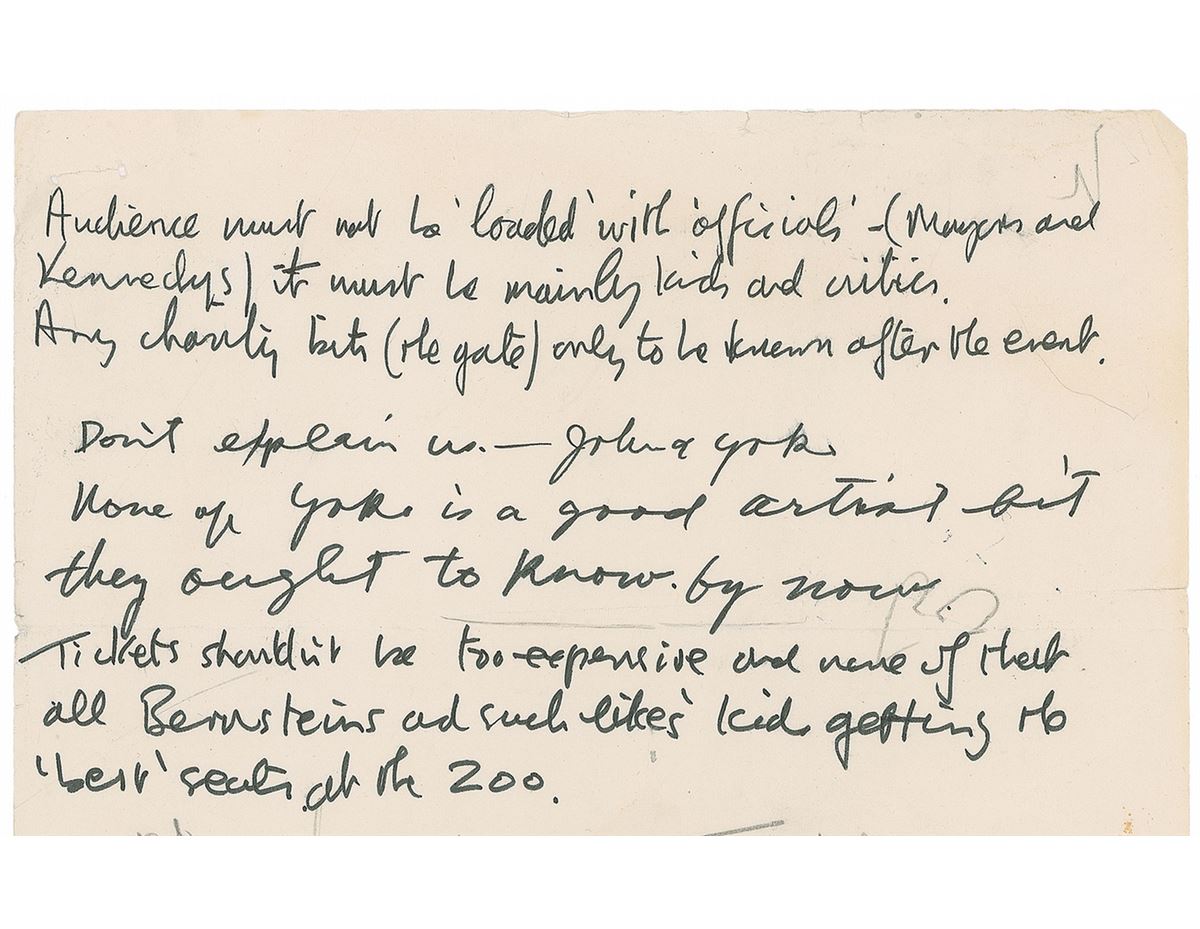 Audience must not be 'loaded' with 'officials' - (Mayors and
Kennedys) it must be mainly kids and critics.
Any charity bits (the gate) only to be known after the event.
Don't explain us. — John & Yoko
None of Yoko is a good artist bit
they ought to know. by now.
Tickets shouldn't be too expensive and none of that
all Bernsteins and such likes' kids getting the
'best' seats at the zoo.